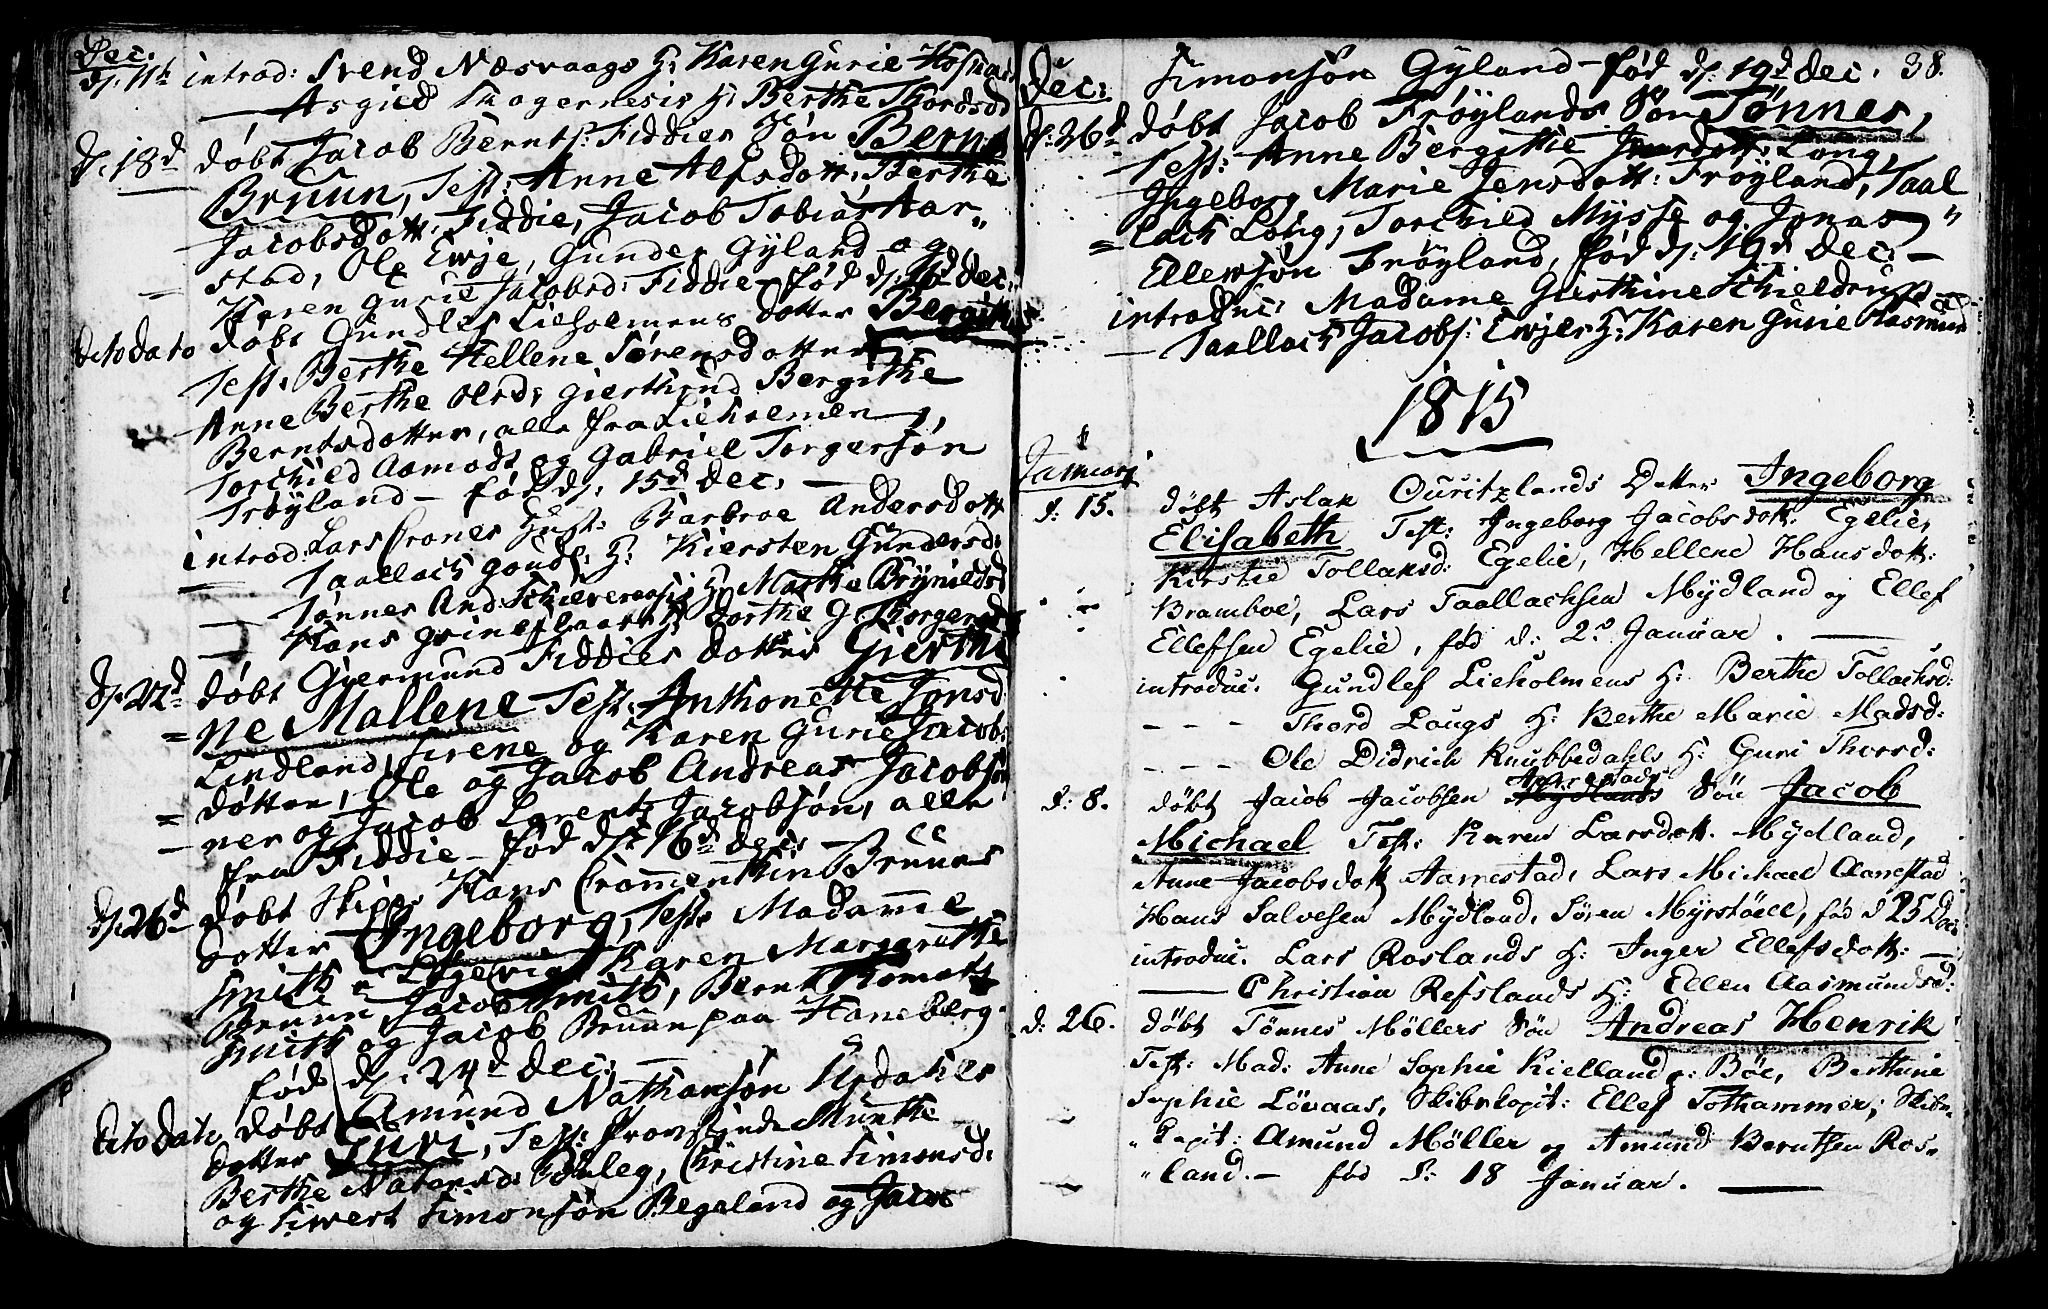 Dec:
d: 11te introd: Svend Næsvaags H: Karen Gurie
— Asgied H: Berthe Thordsd
d: 18d døbt Jacob Bernts: Fiddies Søn Bernt
Bruun, Test: Anne Alfsdott: Berthe
Jacobsdott: Fiddie, Jacob Tobias Aar„
stad, Ole Ewje, Gunder Gyland og
Karen Gurie Jacobsd: Fiddie – fød d: 16d Dec:
dito dato døbt Gundlef Lieholmens dotter Bergithe
Test: Berthe Hellene Sørensdotter
Anne Berthe Olsd: Gierthrud Bergithe
Berntsdotter, alle fra Lieholmen,
Torchild Aamodt og Gabriel Torgersøn
Frøyland – fød d: 15d Dec: —
introd: Lars Crones Hust: Barbroe Andersdott
— Taallach Gouds: H: Kiersten Gundersd:
— Tønnes And: H: Marthe Brynildsd
— Hans H: Dorthe G. Torgersd
d: 22d døbt Giermund Fiddies dotter Gierthi
= ne Mallene Test: Anthonette Jonsd
Lindland, Sirene og Karen Gurie Jacobs:
= døtter, Ole og Jacob Andreas Jacobsøn
– ner og Jacob Lorentz Jacobsøn, alle
fra Fiddie – fød d: 16d Dec: —
d: 26d døbt Skipr Hans Crommenthin Bruuns
dotter Ingeborg, Test: Madamme
Smith – Karen Margarethe
Bruun, Jacob Smith, Bernt Thomas
Smith og Jacob Bruun paa Haneberg
fød d: 24d Dec: —
dito dato døbt Amund Nathansøn Urdahls
dotter Guri, Test: Provstinde Munthe
Berthe Natansd: Christine Simonsd:
og Siwert Simonsøn Regeland og Jacob
Dec: Simonsøn Gyland – fød d: 19d Dec. 38.
d: 26d døbt Jacob Frøylands Søn Tønnes,
Test: Anne Bergithe Long,
Ingeborg Marie Jensdott: Frøyland, Taal
= lach Long, Torchild Mysse og Jonas
Ellewsøn Frøyland, fød d: 19d Dec: —
introduc: Madame Gierthine Schieldrup —
— Taallach Jacobs: Ewjes H: Karen Gurie Rasmusd
1815
Januarj
d: 15. døbt Aslak Ouritzlands Datter Ingeborg
Elisabeth Test: Ingeborg Jacobsdott: Egelie,
Kirstie Tollaksd: Egelie, Hellene Hansdott:
Bramboe, Lars Taallachsen Mydland og Ellef
Ellefsen Egelie, fød d: 2d Januar. —
introduc. Gundlef Lieholmens H: Berthe Tollachsd:
– – – Thord Lougs H: Berthe Marie Madsd:
– – – Ole Didrich Knubbedahls H: Guri Thorsd:
Aarrestads
d: 8. døbt Jacob Jacobsen Mydlands Søn Jacob
Michael Test: Karen Larsdott. Mydland,
Anne Jacobsdott Aarrestad, Lars Michael Aarrestad
Hans Salvesen Mydland, Sören Myrstöell, fød d 25 Dec
introduc. Lars Roslands H: Inger Ellefsdott: —
— Christian Refslands H: Ellen Aasmundsd:
d: 26. døbt Tönnes Möllers Søn Andreas Henrik
Test: Mad: Anne Sophie Kielland, Böe, Berthine
Sophie Lövaas, Skibskapit: Ellef Tothammer, Skibs„
„kapit: Amund Möller og Amund Berntsen Ros„
„land. – fød d: 18 Januar. —